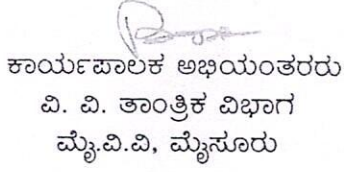 ಕಾರ್ಯಪಾಲಕ ಅಭಿಯಂತರರು
ವಿ. ವಿ. ತಾಂತ್ರಿಕ ವಿಭಾಗ
ಮೈ.ವಿ.ವಿ, ಮೈಸೂರು